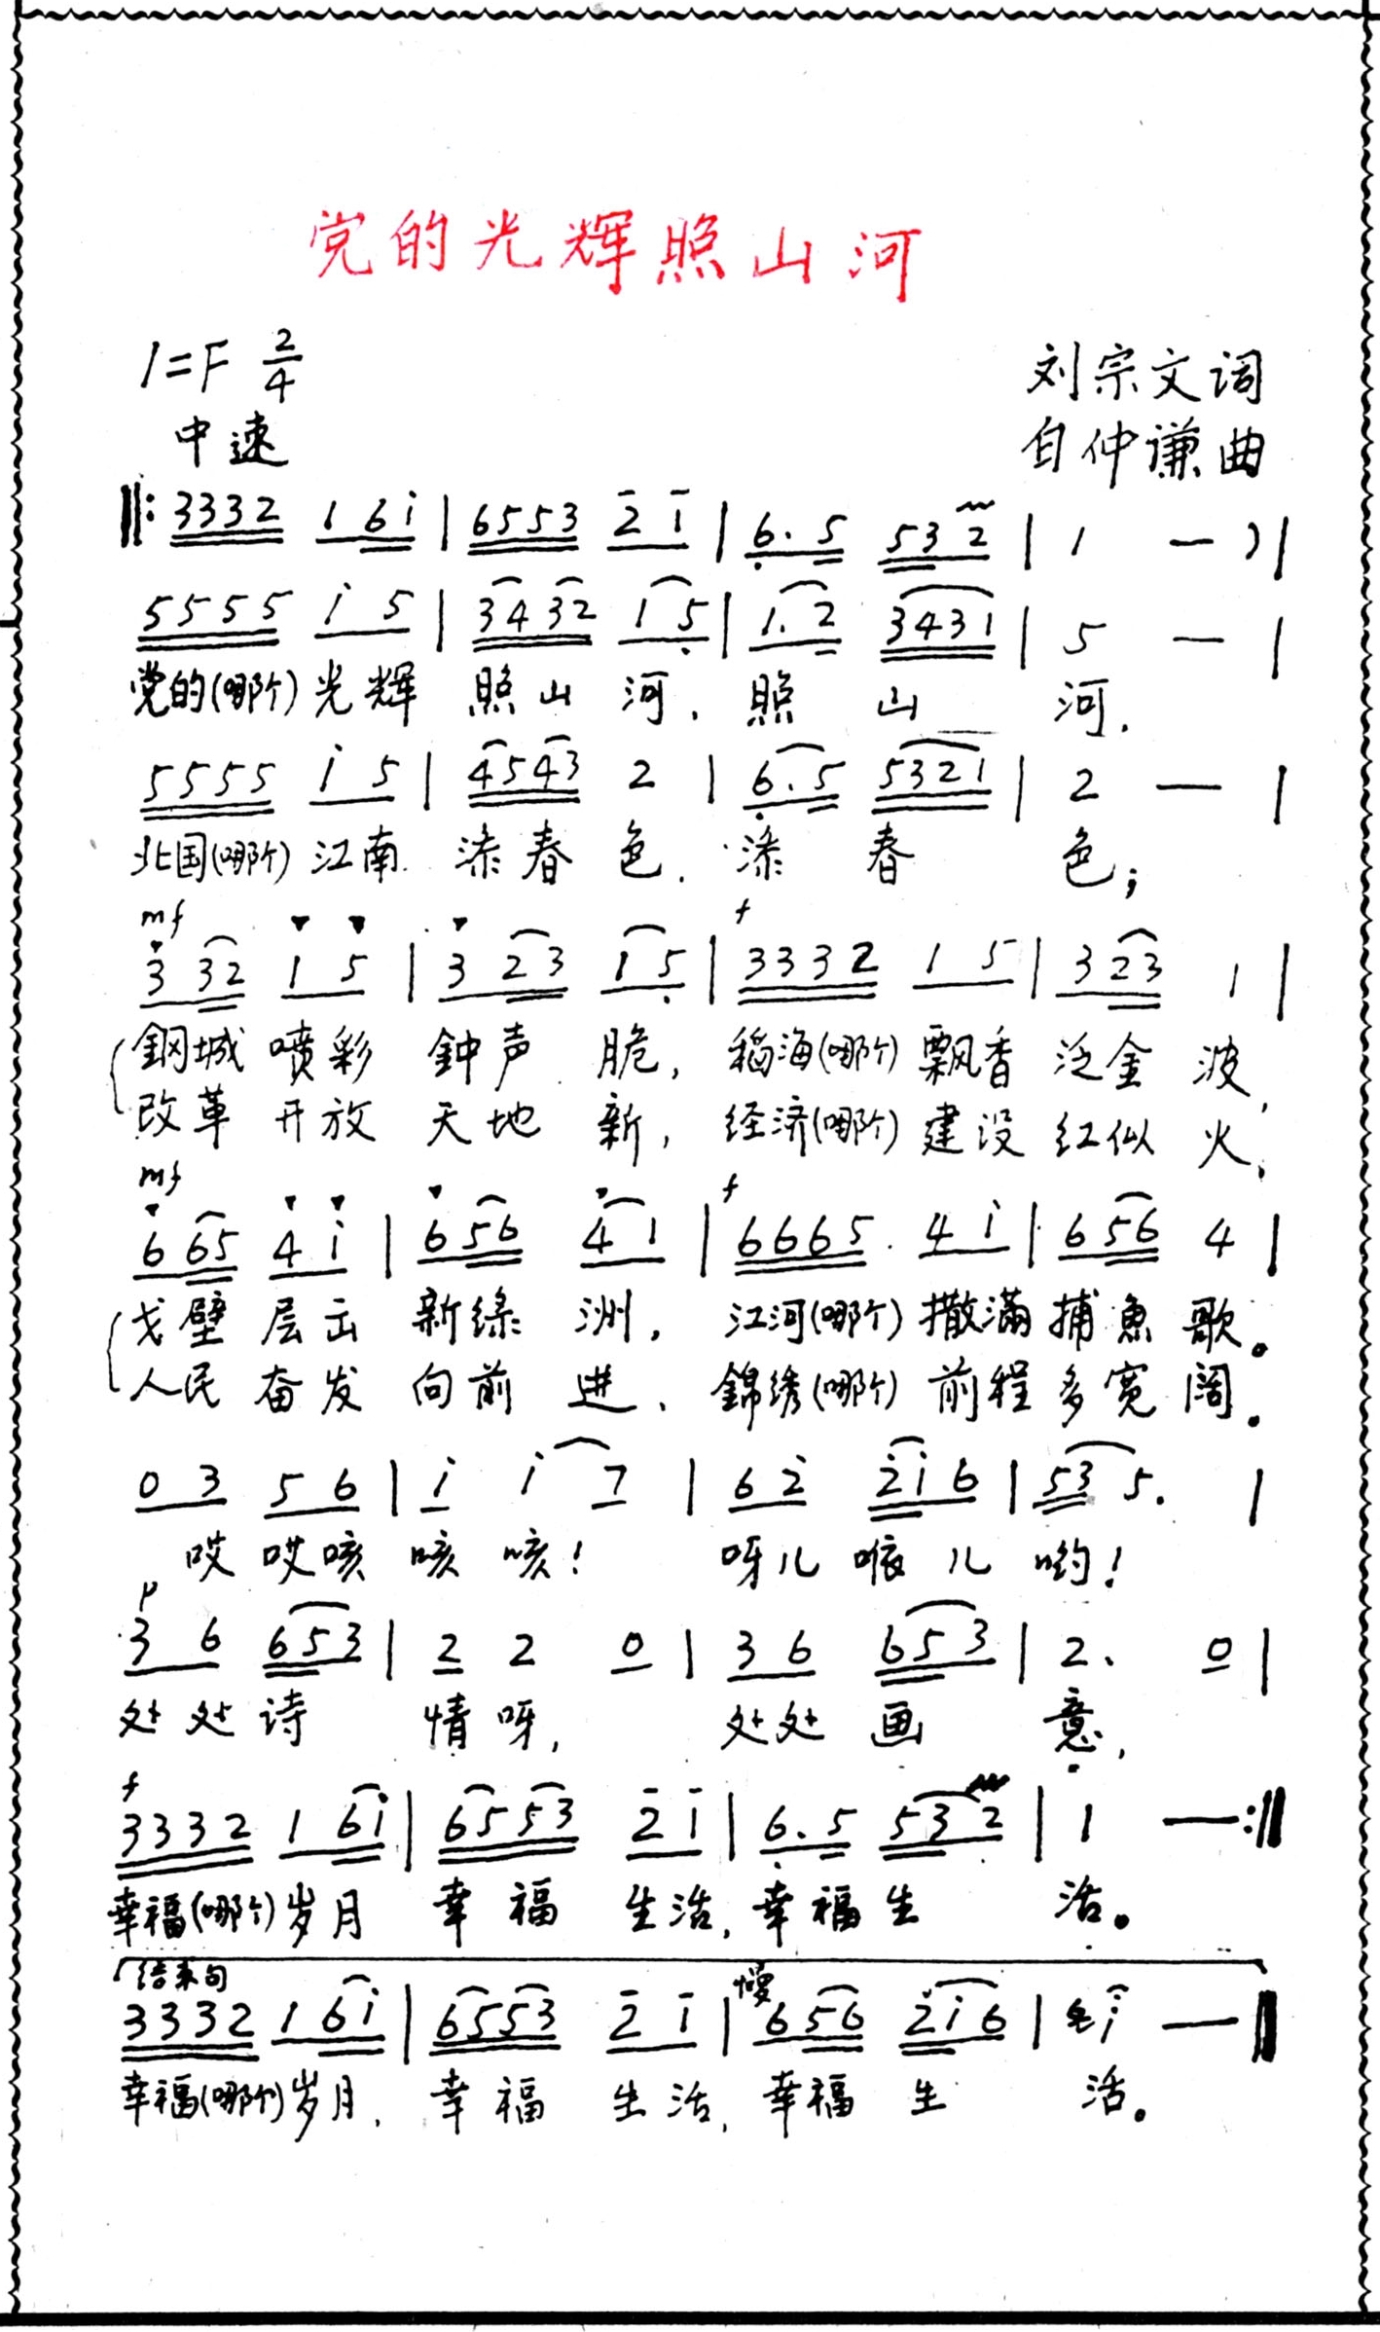 党的光辉照山河
1=F 2/4
刘宗文词
中速
自仲谦曲
‖: 3332 1 6i | 6553 2 1 | 6. 5 53 2 | 1 — ) |
5555 i 5 | 3432 1 5 | 1. 2 3431 | 5 — |
党的(哪个)光辉 照山河, 照山河,
5555 i 5 | 4543 2 | 6. 5 5321 | 2 — |
北国(哪个)江南 添春色, 添春色;
mf f
3 32 1 5 | 3 23 1 5 | 3332 1 5 | 3 23 1 |
鋼城 喷彩 鈡声脆, 稻海(哪个)飘香 泛金波,
改革 开放 天地新, 经济(哪个)建设 红似火,
mf f
6 65 4 i | 6 56 4 1 | 6665 4 i | 6 56 4 |
戈壁 层出 新绿洲, 江河(哪个)撒滿 捕魚歌。
人民 奋发 向前进, 錦绣(哪个)前程 多宽阔。
0 3 5 6 | i i 7 | 6 2 2i 6 | 53 5. |
哎 哎咳 咳 咳! 呀儿 喉儿 哟!
p
3 6 65 3 | 2 2 0 | 3 6 65 3 | 2. 0 |
处处诗 情呀, 处处画 意,
f
3332 1 6i | 6553 2 1 | 6. 5 53 2 | 1 — :‖
幸福(哪个)岁月 幸福 生活, 幸福生 活。
结束句 慢
3332 1 6i | 6553 2 1 | 6 56 2i 6 | i — ‖
幸福(哪个)岁月, 幸福 生活, 幸福 生 活。